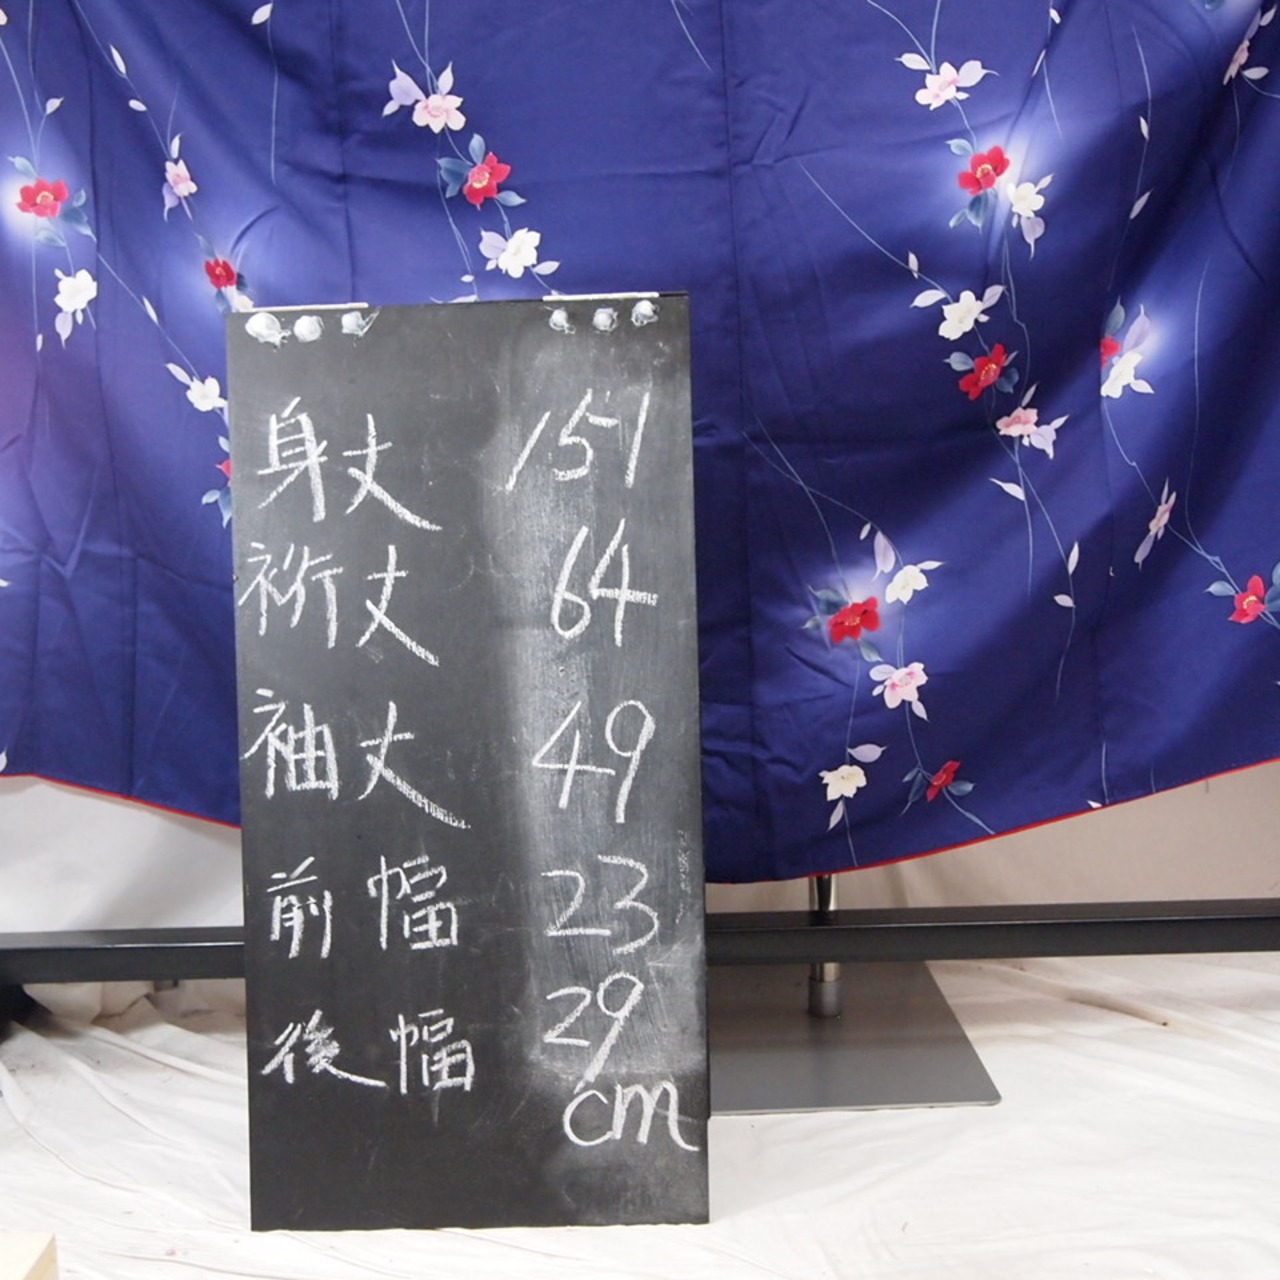 身丈 151
裄丈 64
袖丈 49
前幅 23
後幅 29
cm